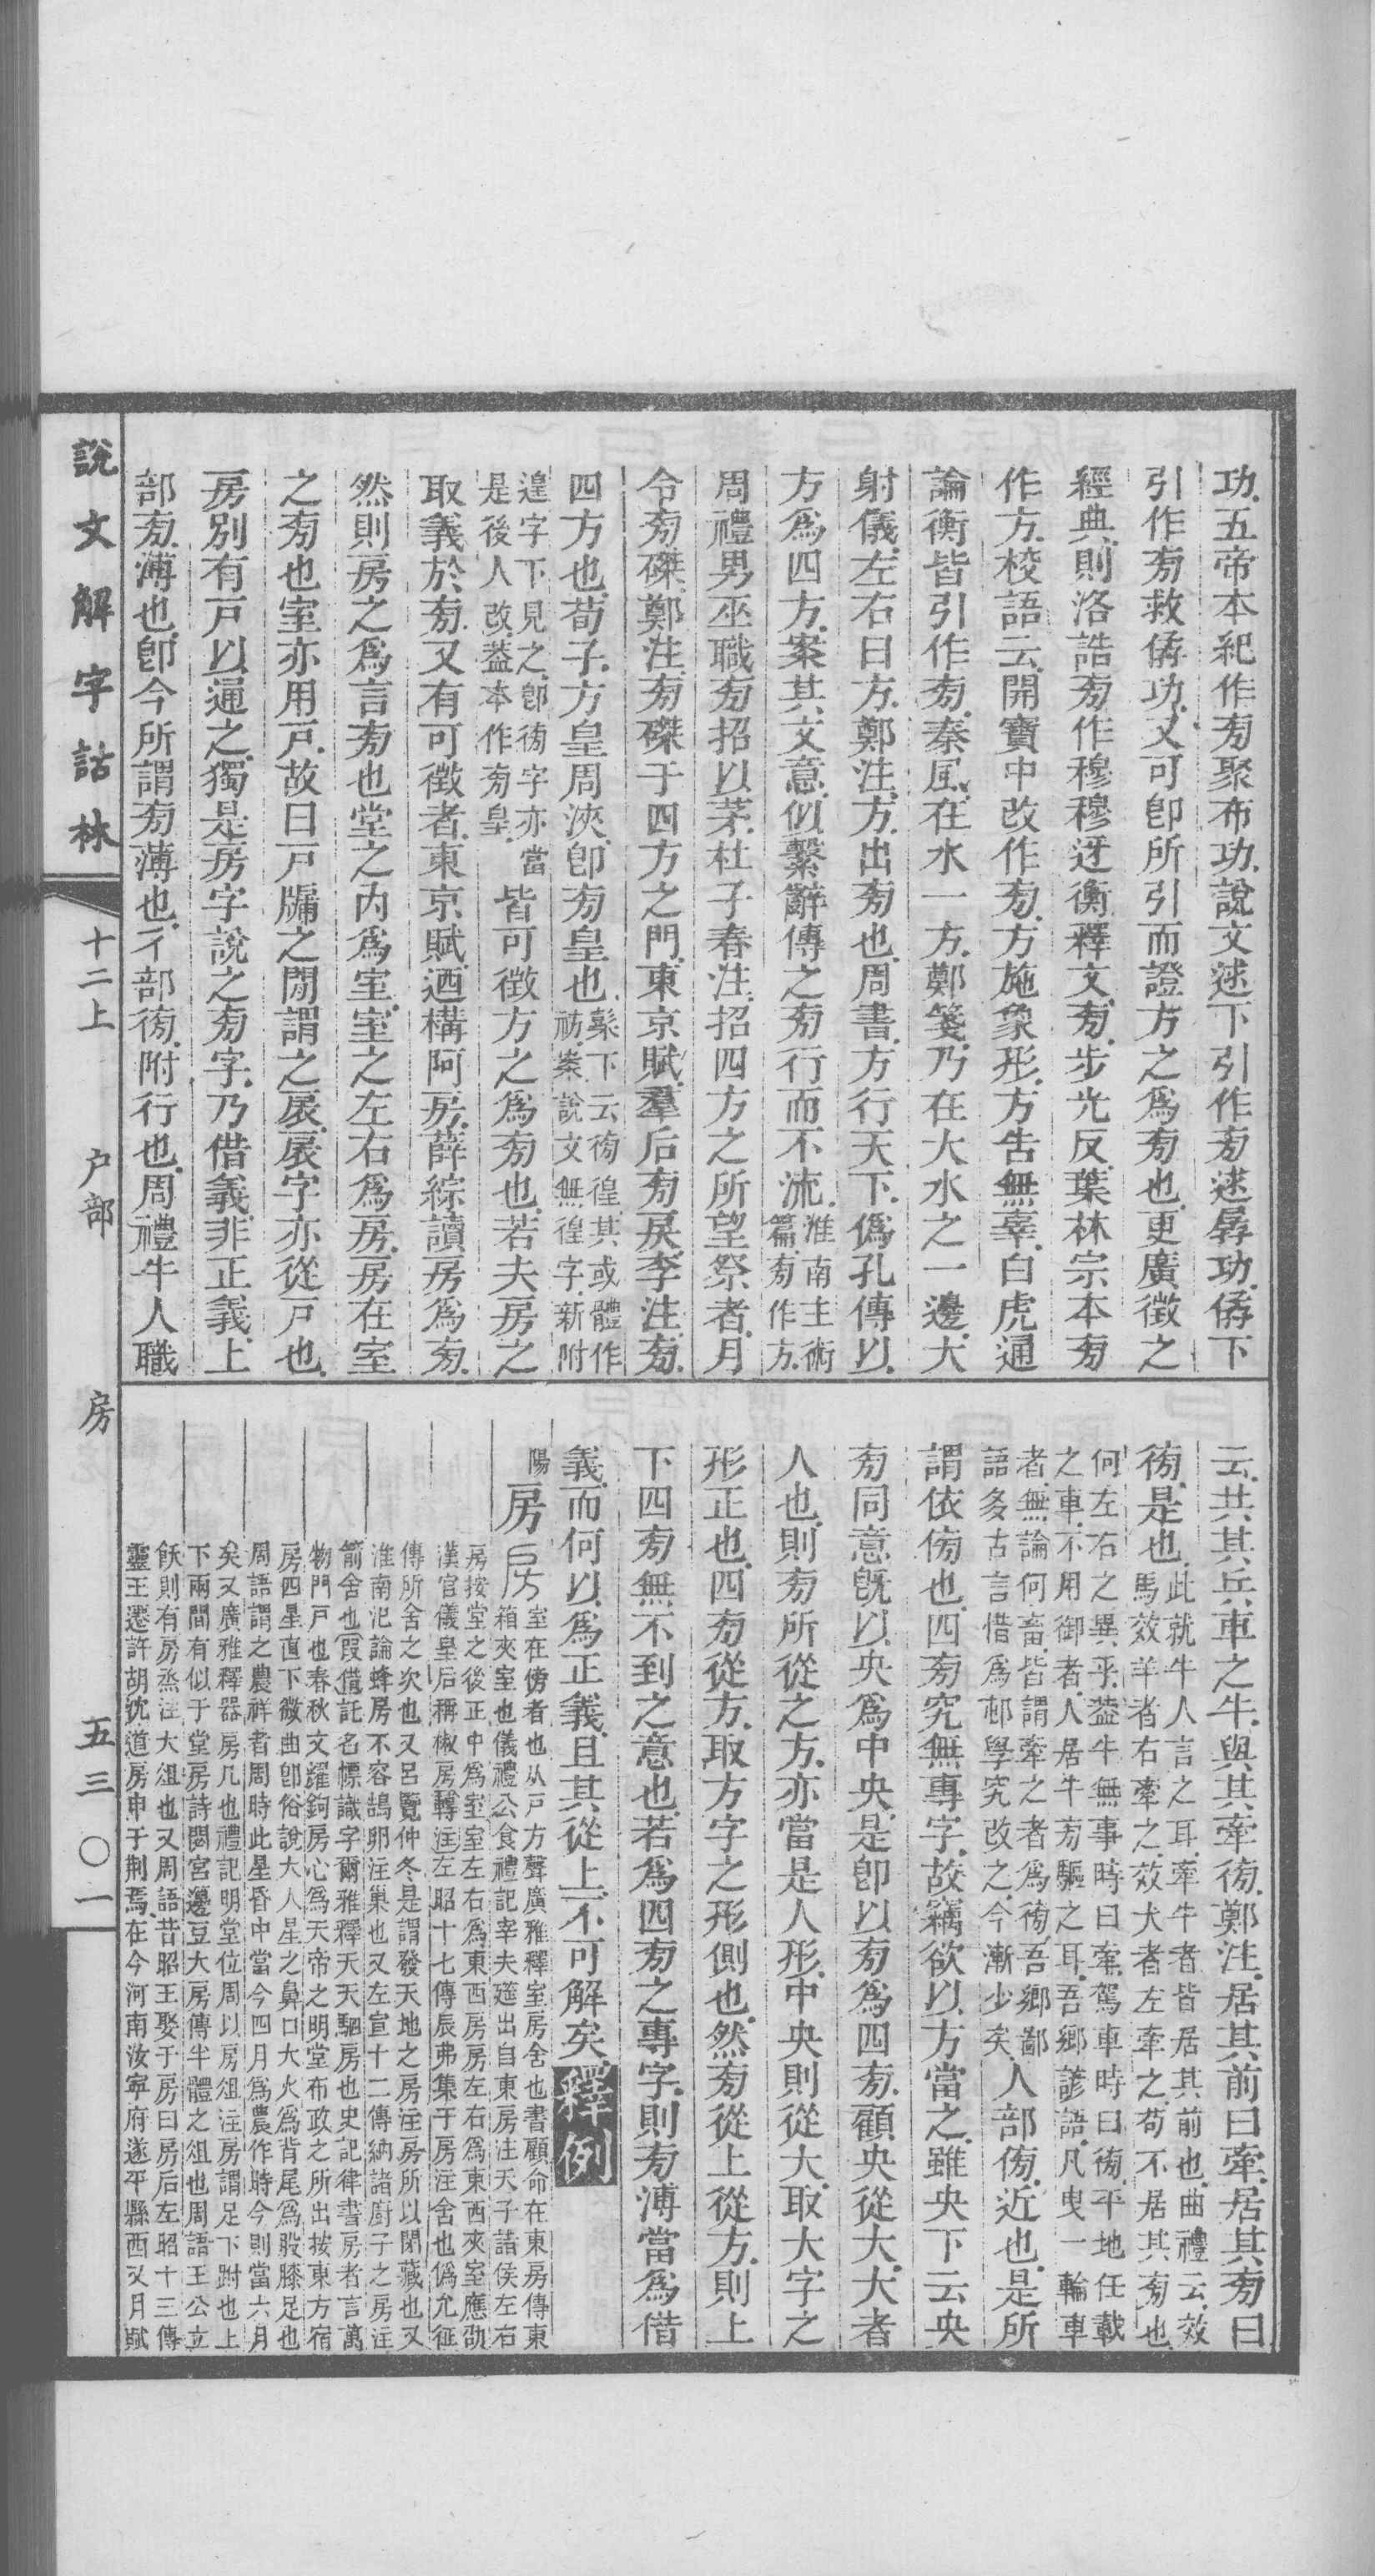 功五帝本紀作旁聚布功說文逑下引作旁逑孱功僝下
引作旁救僝功又可卽所引而證方之爲旁也更廣徵之
經典則洛誥旁作穆穆迓衡釋文旁步光反葉林宗本旁
作方校語云開寶中改作旁方施象形方告無辜白虎通
論衡皆引作旁秦風在水一方鄭箋乃在大水之一邊大
射儀左右曰方鄭注方出旁也周書方行天下僞孔傳以
方爲四方案其文意似繫辭傳之旁行而不流淮南主術
篇旁作方
周禮男巫職旁招以茅杜子春注招四方之所望祭者月
令旁磔鄭注旁磔于四方之門東京賦羣后旁戾李注旁
四方也荀子方皇周浹卽旁皇也鬃下云徬徨其或體作
祊案說文無徨字新附
遑字下見之卽徬字亦當
是後人改葢本作旁皇皆可徵方之爲旁也若夫房之
取義於旁又有可徵者東京賦迺構阿房薛綜讀房爲旁
然則房之爲言旁也堂之內爲室室之左右爲房房在室
之旁也室亦用戶故曰戶牖之閒謂之扆扆字亦從戶也
房別有戶以通之獨是房字說之旁字乃借義非正義上
部旁溥也卽今所謂旁薄也彳部徬附行也周禮牛人職
云共其兵車之牛與其牽徬鄭注居其前曰牽居其旁曰
徬是也此就牛人言之耳牽牛者皆居其前也曲禮云效
馬效羊者右牽之效犬者左牽之苟不居其旁也
何左右之異乎葢牛無事時曰牽駕車時曰徬平地任載
之車不用御者人居牛旁驅之耳吾鄉諺語凡曳一輪車
者無論何畜皆謂牽之者爲徬吾鄉鄙
語多古言惜爲邨學究改之今漸少矣人部傍近也是所
謂依傍也四旁究無專字故竊欲以方當之雖央下云央
旁同意旣以央爲中央是卽以旁爲四旁顧央從大大者
人也則旁所從之方亦當是人形中央則從大取大字之
形正也四旁從方取方字之形側也然旁從上從方則上
下四旁無不到之意也若爲四旁之專字則旁溥當爲借
義而何以爲正義且其從上不可解矣釋例
陽
房 房 室在傍者也从戶方聲廣雅釋室房舍也書顧命在東房傳東
箱夾室也儀禮公食禮記宰夫筵出自東房注天子諸侯左右
房按堂之後正中爲室室左右爲東西房房左右爲東西夾室應劭
漢官儀皇后稱椒房轉注左昭十七傳辰弗集于房注舍也僞允征
傳所舍之次也又呂覽仲冬是謂發天地之房注房所以閉藏也又
淮南氾論蜂房不容鵠卵注巢也又左宣十二傳納諸廚子之房注
箭舍也假借託名幖識字爾雅釋天天駟房也史記律書房者言萬
物門戶也春秋文耀鉤房心爲天帝之明堂布政之所出按東方宿
房四星直下微曲卽俗說大人星之鼻口大火爲背尾爲股膝足也
周語謂之農祥者周時此星昏中當今四月爲農作時今則當六月
矣又廣雅釋器房几也禮記明堂位周以房俎注房謂足下跗也上
下兩間有似于堂房詩閟宮籩豆大房傳半體之俎也周語王公立
飫則有房烝注大俎也又周語昔昭王娶于房曰房后左昭十三傳
靈王遷許胡沈道房申于荆焉在今河南汝寧府遂平縣西又月賦
說文解字詁林
十二上 戶部 房
五三〇一